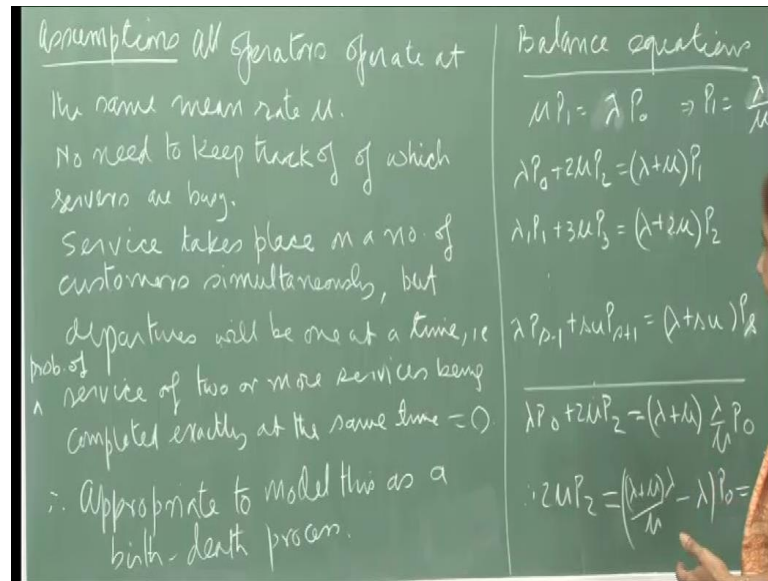 Assumptions All operators operate at
the same mean rate μ.
No need to keep track of of which
servers are busy.
Service takes place on a no. of
customers simultaneously, but
departures will be one at a time, ie
prob. of
^ service of two or more services being
completed exactly at the same time = 0.
∴ Appropriate to model this as a
birth-death process.
Balance equations
μP₁ = λP₀ ⇒ P₁ = λ/μ
λP₀ + 2μP₂ = (λ+μ)P₁
λ₁P₁ + 3μP₃ = (λ+2μ)P₂
⋮
λPₛ₋₁ + sμPₛ₊₁ = (λ+sμ)Pₛ
λP₀ + 2μP₂ = (λ+μ) λ/μ P₀
∴ 2μP₂ = ((λ+μ)λ/μ - λ)P₀ =